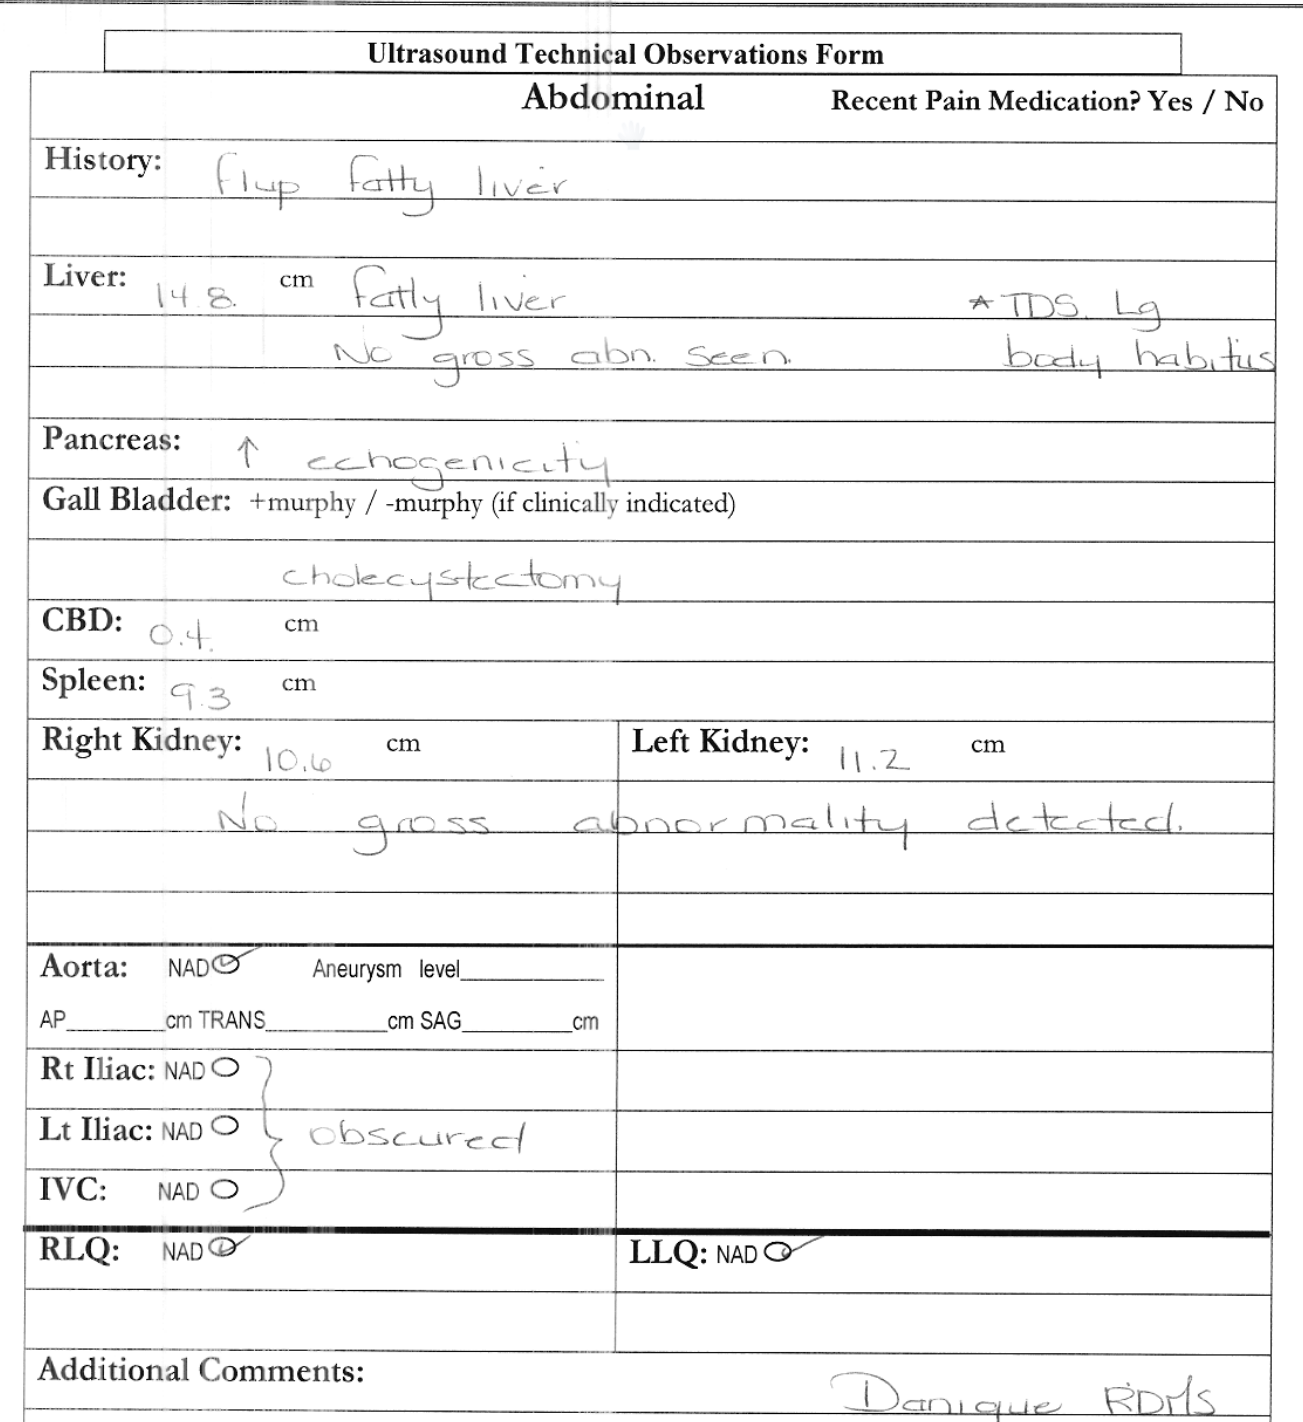 Ultrasound Technical Observations Form
Abdominal Recent Pain Medication? Yes / No
History: f/up fatty liver
Liver: 14.8. cm fatty liver * TDS. Lg
No gross abn. seen. body habitus
Pancreas: ↑ echogenicity
Gall Bladder: +murphy / -murphy (if clinically indicated)
cholecystectomy
CBD: 0.4. cm
Spleen: 9.3 cm
Right Kidney: 10.6 cm Left Kidney: 11.2 cm
No gross abnormality detected.
Aorta: NAD Aneurysm level
AP cm TRANS cm SAG cm
Rt Iliac: NAD
Lt Iliac: NAD obscured
IVC: NAD
RLQ: NAD LLQ: NAD
Additional Comments:
Danique RDMS